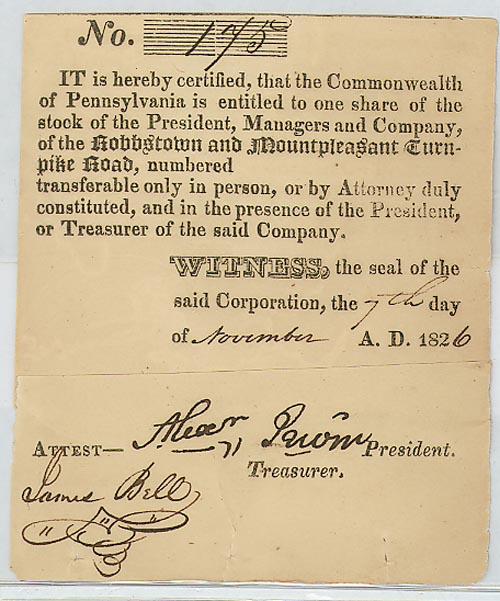 No. 175
IT is hereby certified, that the Commonwealth
of Pennsylvania is entitled to one share of the
stock of the President, Managers and Company,
of the Robbstown and Mountpleasant Turn-
pike Road, numbered
transferable only in person, or by Attorney duly
constituted, and in the presence of the President,
or Treasurer of the said Company.
WITNESS, the seal of the
said Corporation, the 7th day
of November A. D. 1826
ATTEST— Alexr President.
Treasurer.
James Bell